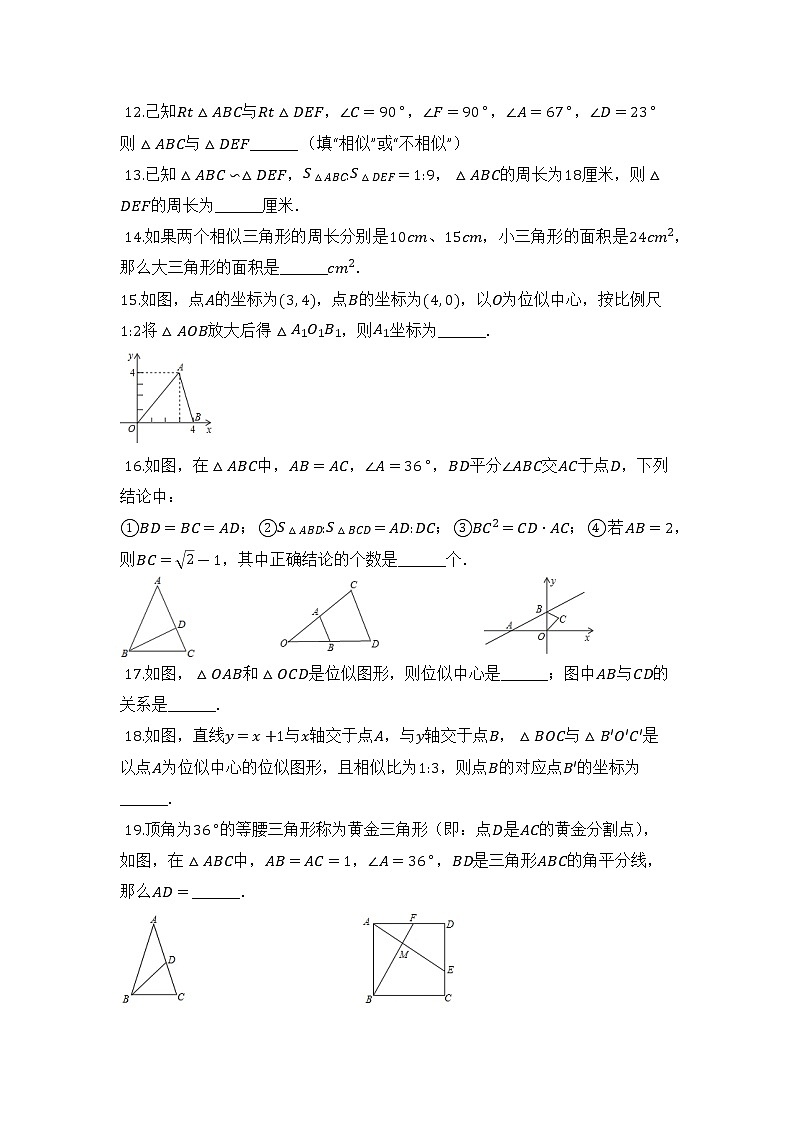 12.己知Rt△ABC与Rt△DEF，∠C=90°，∠F=90°，∠A=67°，∠D=23°
则△ABC与△DEF______（填“相似”或“不相似”）
13.已知△ABC∽△DEF，S△ABC:S△DEF=1:9，△ABC的周长为18厘米，则△
DEF的周长为______厘米．
14.如果两个相似三角形的周长分别是10cm、15cm，小三角形的面积是24cm²，
那么大三角形的面积是______cm²．
15.如图，点A的坐标为(3,4)，点B的坐标为(4,0)，以O为位似中心，按比例尺
1:2将△AOB放大后得△A₁O₁B₁，则A₁坐标为______．
y
A
4
B
O
4
x
16.如图，在△ABC中，AB=AC，∠A=36°，BD平分∠ABC交AC于点D，下列
结论中：
①BD=BC=AD；②S△ABD:S△BCD=AD:DC；③BC²=CD·AC；④若AB=2，
则BC=√2-1，其中正确结论的个数是______个．
A
D
B
C
C
A
O
B
D
y
B
C
A
O
x
17.如图，△OAB和△OCD是位似图形，则位似中心是______；图中AB与CD的
关系是______．
18.如图，直线y=x+1与x轴交于点A，与y轴交于点B，△BOC与△B′O′C′是
以点A为位似中心的位似图形，且相似比为1:3，则点B的对应点B′的坐标为
______．
19.顶角为36°的等腰三角形称为黄金三角形（即：点D是AC的黄金分割点），
如图，在△ABC中，AB=AC=1，∠A=36°，BD是三角形ABC的角平分线，
那么AD=______．
A
D
B
C
A
F
D
M
E
B
C